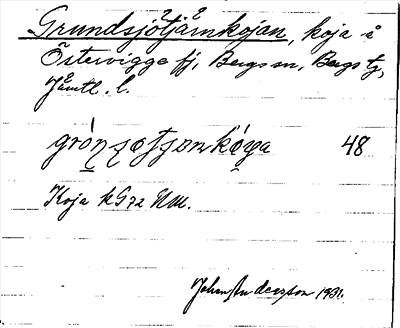 Grundsjötjärnkojan, koja å
Östervigge fj, Bergs sn, Bergs tg,
Jämtl. l.
48
Koja kG72 NM.
Johan Anderson 1931.